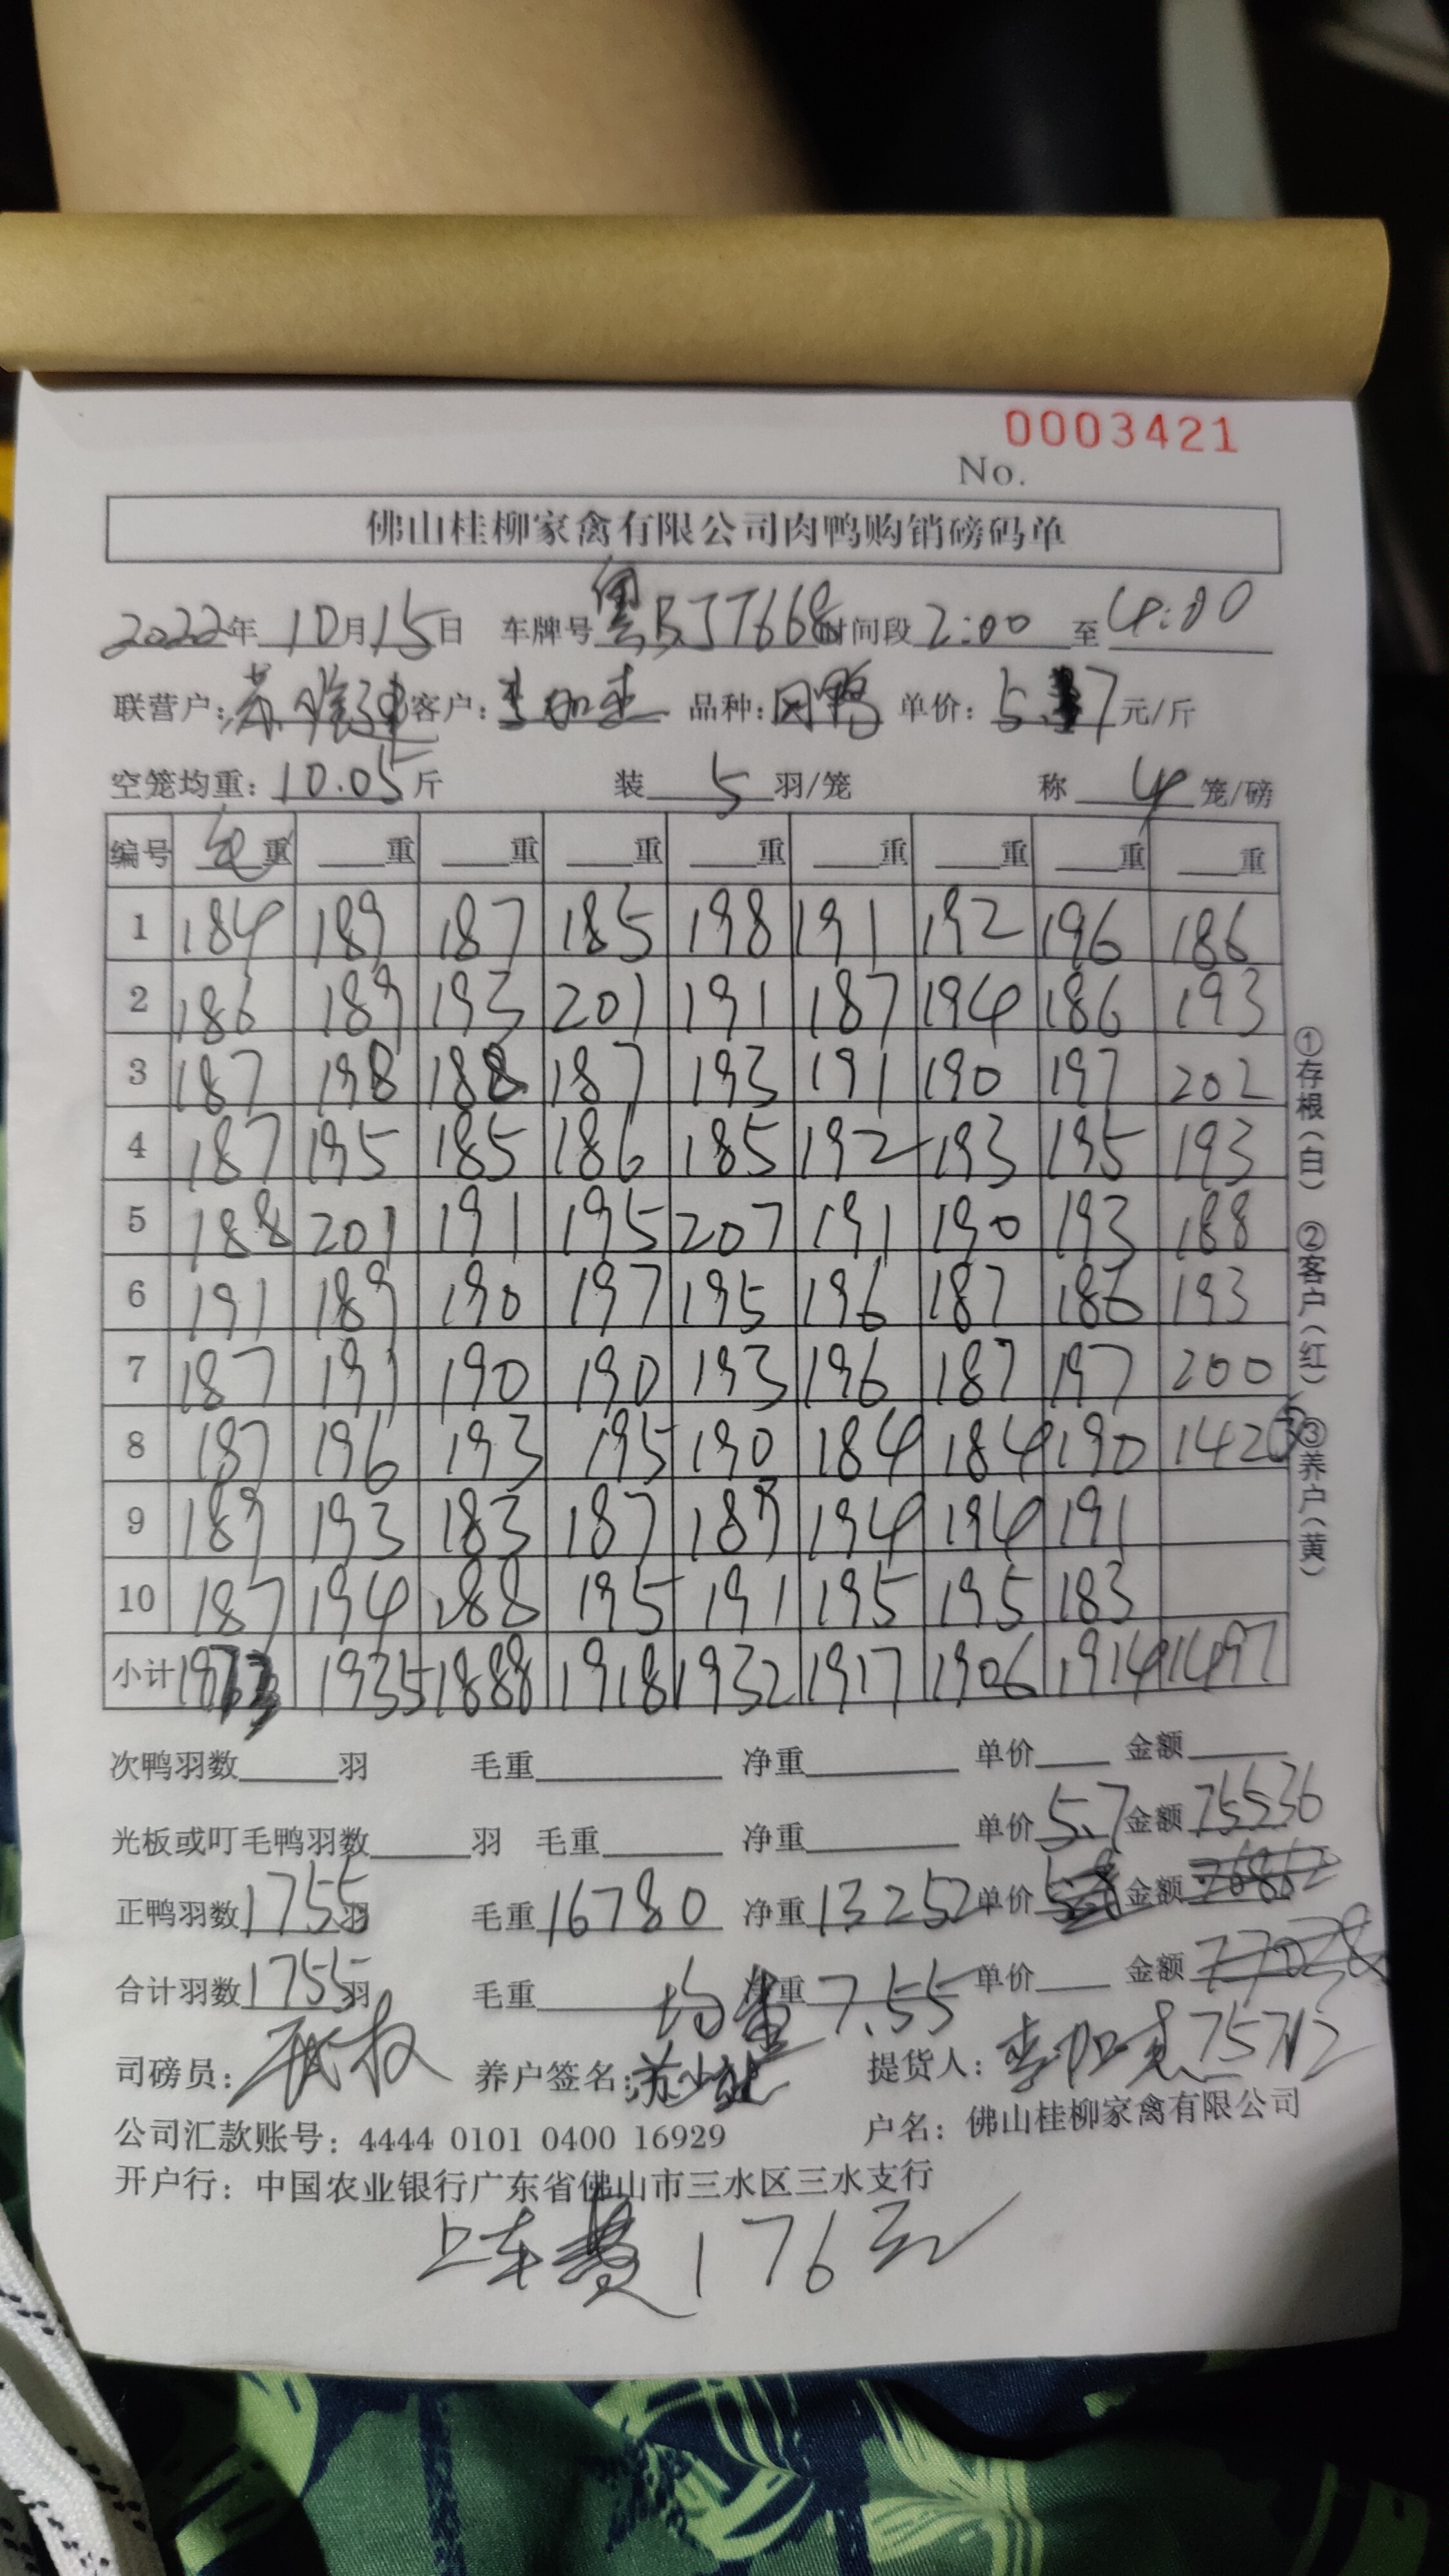 0003421
No.
佛山桂柳家禽有限公司肉鸭购销磅码单
2022年 10月15日 车牌号 粤BJT668 时间段 2:00 至 4:00
联营户: 苏 客户: 李加志 品种: 肉鸭 单价: 5.7 元/斤
空笼均重: 10.05 斤 装 5 羽/笼 称 4 笼/磅
编号 毛重 重 重 重 重 重 重 重 重
1 184 189 187 185 198 191 192 196 186
2 186 189 193 201 191 187 194 186 193
3 187 198 188 187 193 191 190 197 202
4 187 195 185 186 185 192 193 195 193
5 188 201 191 195 207 191 190 193 188
6 191 189 190 197 195 196 187 186 193
7 187 191 190 190 193 196 187 197 200
8 187 196 193 195 190 184 184 190 142
9 189 193 183 187 189 194 194 191
10 187 194 188 195 191 195 195 183
小计 1873 1935 1888 1918 1932 1917 1906 1914 1497
次鸭羽数 羽 毛重 净重 单价 金额
光板或叮毛鸭羽数 羽 毛重 净重 单价 5.7 金额 75536
正鸭羽数 1755 羽 毛重 16780 净重 13252 单价 金额 76862
合计羽数 1755 羽 毛重 均重 净重 7.55 单价 金额 77028
司磅员: 养户签名: 苏 提货人: 李加志 75712
公司汇款账号: 4444 0101 0400 16929 户名: 佛山桂柳家禽有限公司
开户行: 中国农业银行广东省佛山市三水区三水支行
上车费176元
①存根(白) ②客户(红) ③养户(黄)